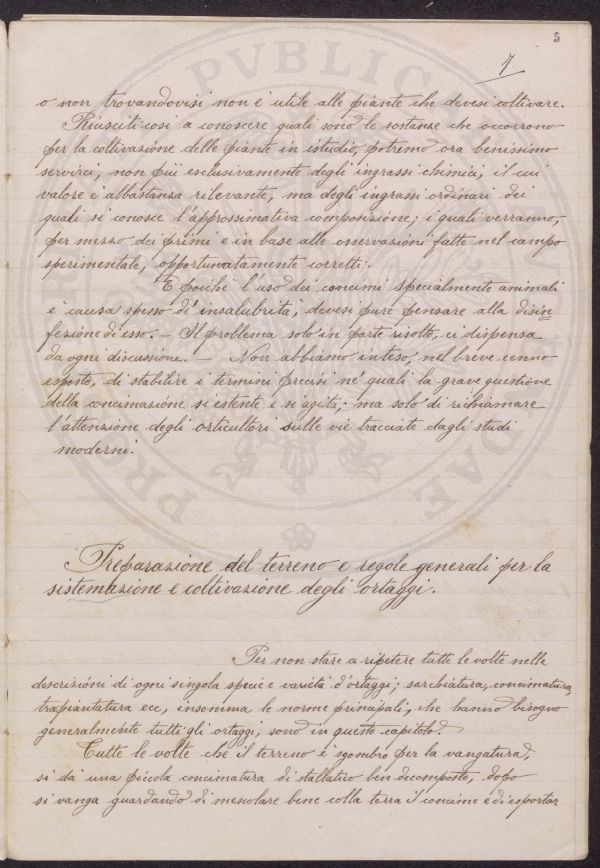 5
7
o non trovandovisi non è utile alle piante che devesi coltivare.
Riusciti così a conoscere quali sono le sostanze che occorrono
per la coltivazione delle piante in istudio, potremo ora benissimo
servirci, non più esclusivamente degli ingrassi chimici, il cui
valore è abbastanza rilevante, ma degli ingrassi ordinari dei
quali si conosce l'approssimativa composizione; i quali verranno,
per mezzo dei primi e in base alle osservazioni fatte nel campo
sperimentale, opportunatamente corretti.
E poichè l'uso dei concimi specialmente animali
è causa spesso d'insalubrità, devesi pure pensare alla disin=
fezione di esso. — Il problema solo in parte risolto, ci dispensa
da ogni discussione. — Noi abbiamo inteso, nel breve cenno
esposto, di stabilire i termini precisi ne' quali la grave questione
della concimazione si estente e si agita; ma solo di richiamare
l'attenzione degli orticultori sulle vie tracciate dagli studi
moderni.
Preparazione del terreno e regole generali per la
sistemazione e coltivazione degli ortaggi.
Per non stare a ripetere tutte le volte nelle
descrizioni di ogni singola specie e varietà d'ortaggi; sarchiatura, concimatura,
trapiantatura ecc, insomma le norme principali, che hanno bisogno
generalmente tutti gli ortaggi, sono in questo capitolo.
Tutte le volte che il terreno è sgombro per la vangatura,
si dà una piccola concimatura di stallatico ben decomposto, dopo
si vanga guardando di mescolare bene colla terra il concime e di esportar